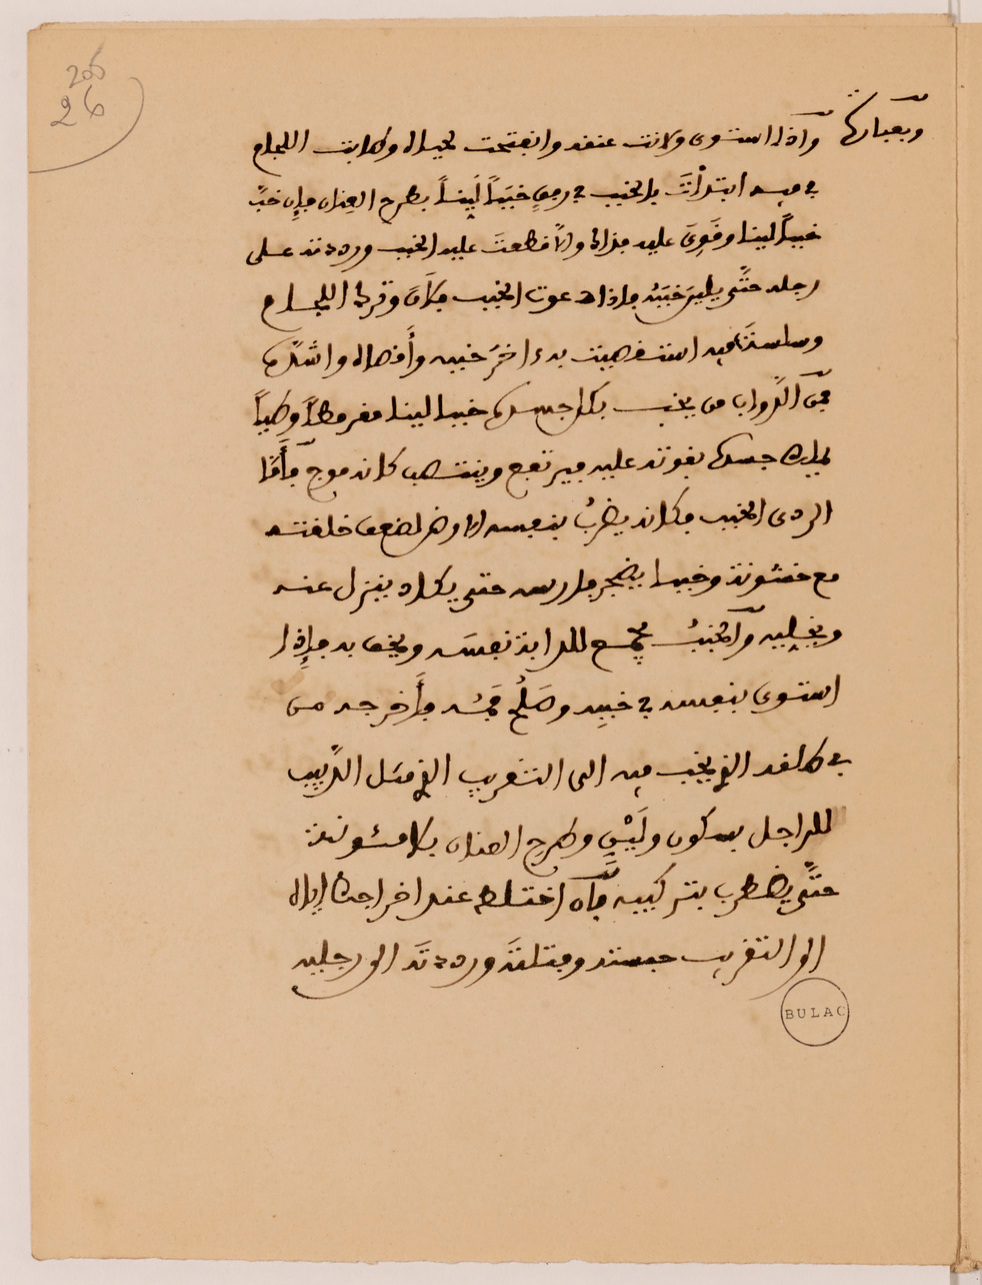 206
26
وبعبارة
وإذا استوى ولانت عنقه وانفتحت لحياه وطابت اللجام
في فيه ابتدأتَ بالخبب في رفق خببًا لَيّنًا بطرح العنان فإن خبّ
خببًا لينا وقَوِيَ عليه فذاك وإلّا قطعتَ عليه الخبب ورددته على
رجله حتّى يلين خَبَبُه فإذا دعوت الخبب فلانَ وترك اللجام
وسلستَ فيه استقصيت به ءاخرَ خببه وأقصاه وأشدّه
فمن الدّواب من يخب بكل جسده خببا لينا مقرمطًا وطيًّا
يملك جسده بقوته عليه فيرتفع وينتصب كأنه موج فأمّا
الردى الخبب فكأنه يضربُ بنفسه الأرض لضعف خلقته
مع خشونة وخببا يضجر فارسه حتى يكاد ينزل عنه
ويخليه والخببُ يجمع للدابة نفسَه ويخف به فإذا
استوى بنفسه في خببه وصَلُح فمُه فأَخرجه من
في طلقه الذي يخب فيه الى التقريب الذي مثل الدّبيب
للراجل بسكون ولَيْنٍ وطرح العنان بلا مئونة
حتّى يضطرب بتركيبه فإن اختلط عند اخراجك إياه
الى التقريب حبسته وفتلتَه ورددتَه الى رجليه
BULAC